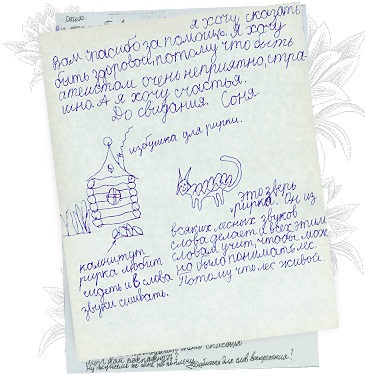 я хочу сказать
Вам спасибо за помощь. Я хочу
быть здоровой, потому что быть
атеистом очень неприятно, стра-
шно. А я хочу счастья.
До свидания. Соня
избушка для рирки.
это зверь
рирка. Он из
всяких лесных звуков
слова делает и всех этим
словам учит, чтобы мож
но было понимать лес.
Потому что лес живой.
камни тут
рирка любит
сидеть и в слова
звуки сшивать.